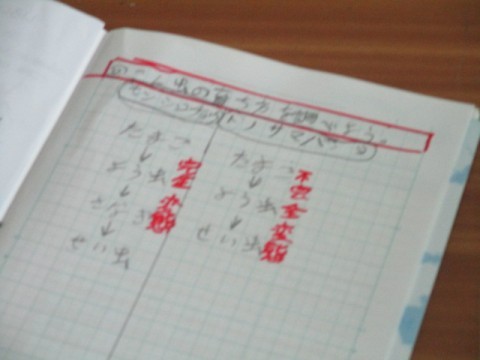 こん虫の育ち方を調べよう。
モンシロチョウ
トノサマバッタ
たまご
↓
よう虫
↓
さなぎ
↓
せい虫
完全変態
たまご
↓
よう虫
↓
せい虫
不完全変態